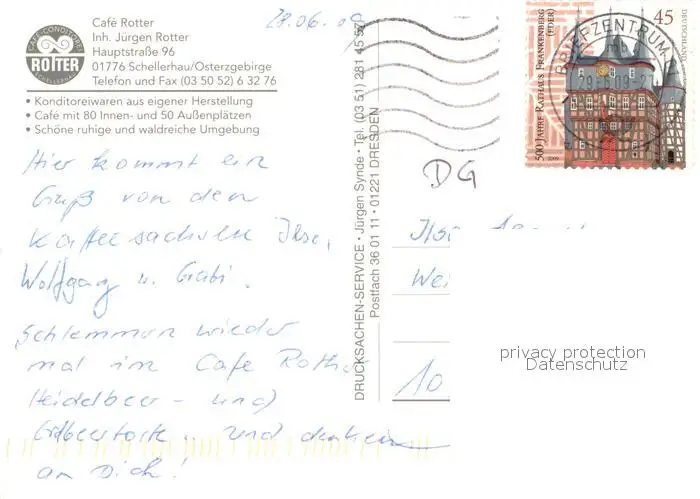 Café Rotter
Inh. Jürgen Rotter
Hauptstraße 96
01776 Schellerhau/Osterzgebirge
Telefon und Fax (03 50 52) 6 32 76
CAFÉ-CONDITOREI
ROTTER
SCHELLERHAU
• Konditoreiwaren aus eigener Herstellung
• Café mit 80 Innen- und 50 Außenplätzen
• Schöne ruhige und waldreiche Umgebung
28.06.09
Hier kommt ein
Gruß von den
Kaffeesachsen Ilse,
Wolfgang u. Gabi.
Schlemmen wieder
mal im Cafe Rotter
Heidelbeer- und
Erdbeertorte.. und denken
an Dich!
DRUCKSACHEN-SERVICE • Jürgen Synde • Tel. (03 51) 281 45 57
Postfach 36 01 11 • 01221 DRESDEN
500 JAHRE RATHAUS FRANKENBERG
(EDER)
45
DEUTSCHLAND
2009
BRIEFZENTRUM
DG
Wei
10
privacy protection
Datenschutz